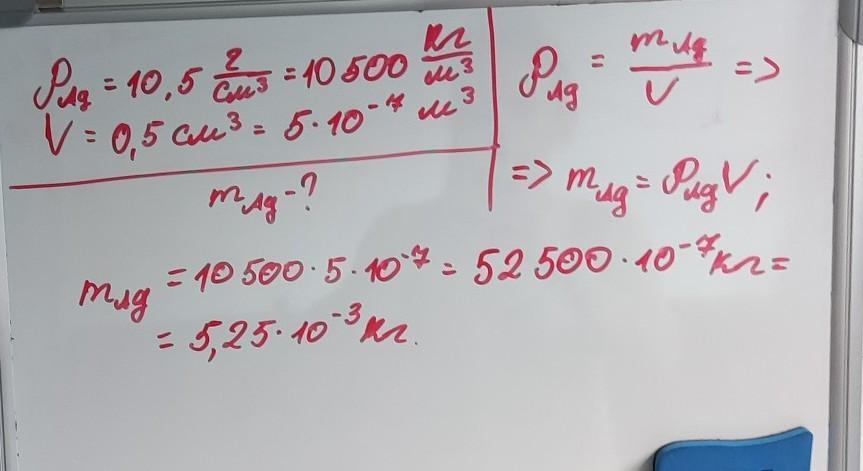 ρAg = 10,5 г/см³ = 10 500 кг/м³
V = 0,5 см³ = 5·10⁻⁷ м³
mAg - ?
ρAg = mAg/V =>
=> mAg = ρAg V;
mAg = 10 500·5·10⁻⁷ = 52 500·10⁻⁷ кг =
= 5,25·10⁻³ кг.